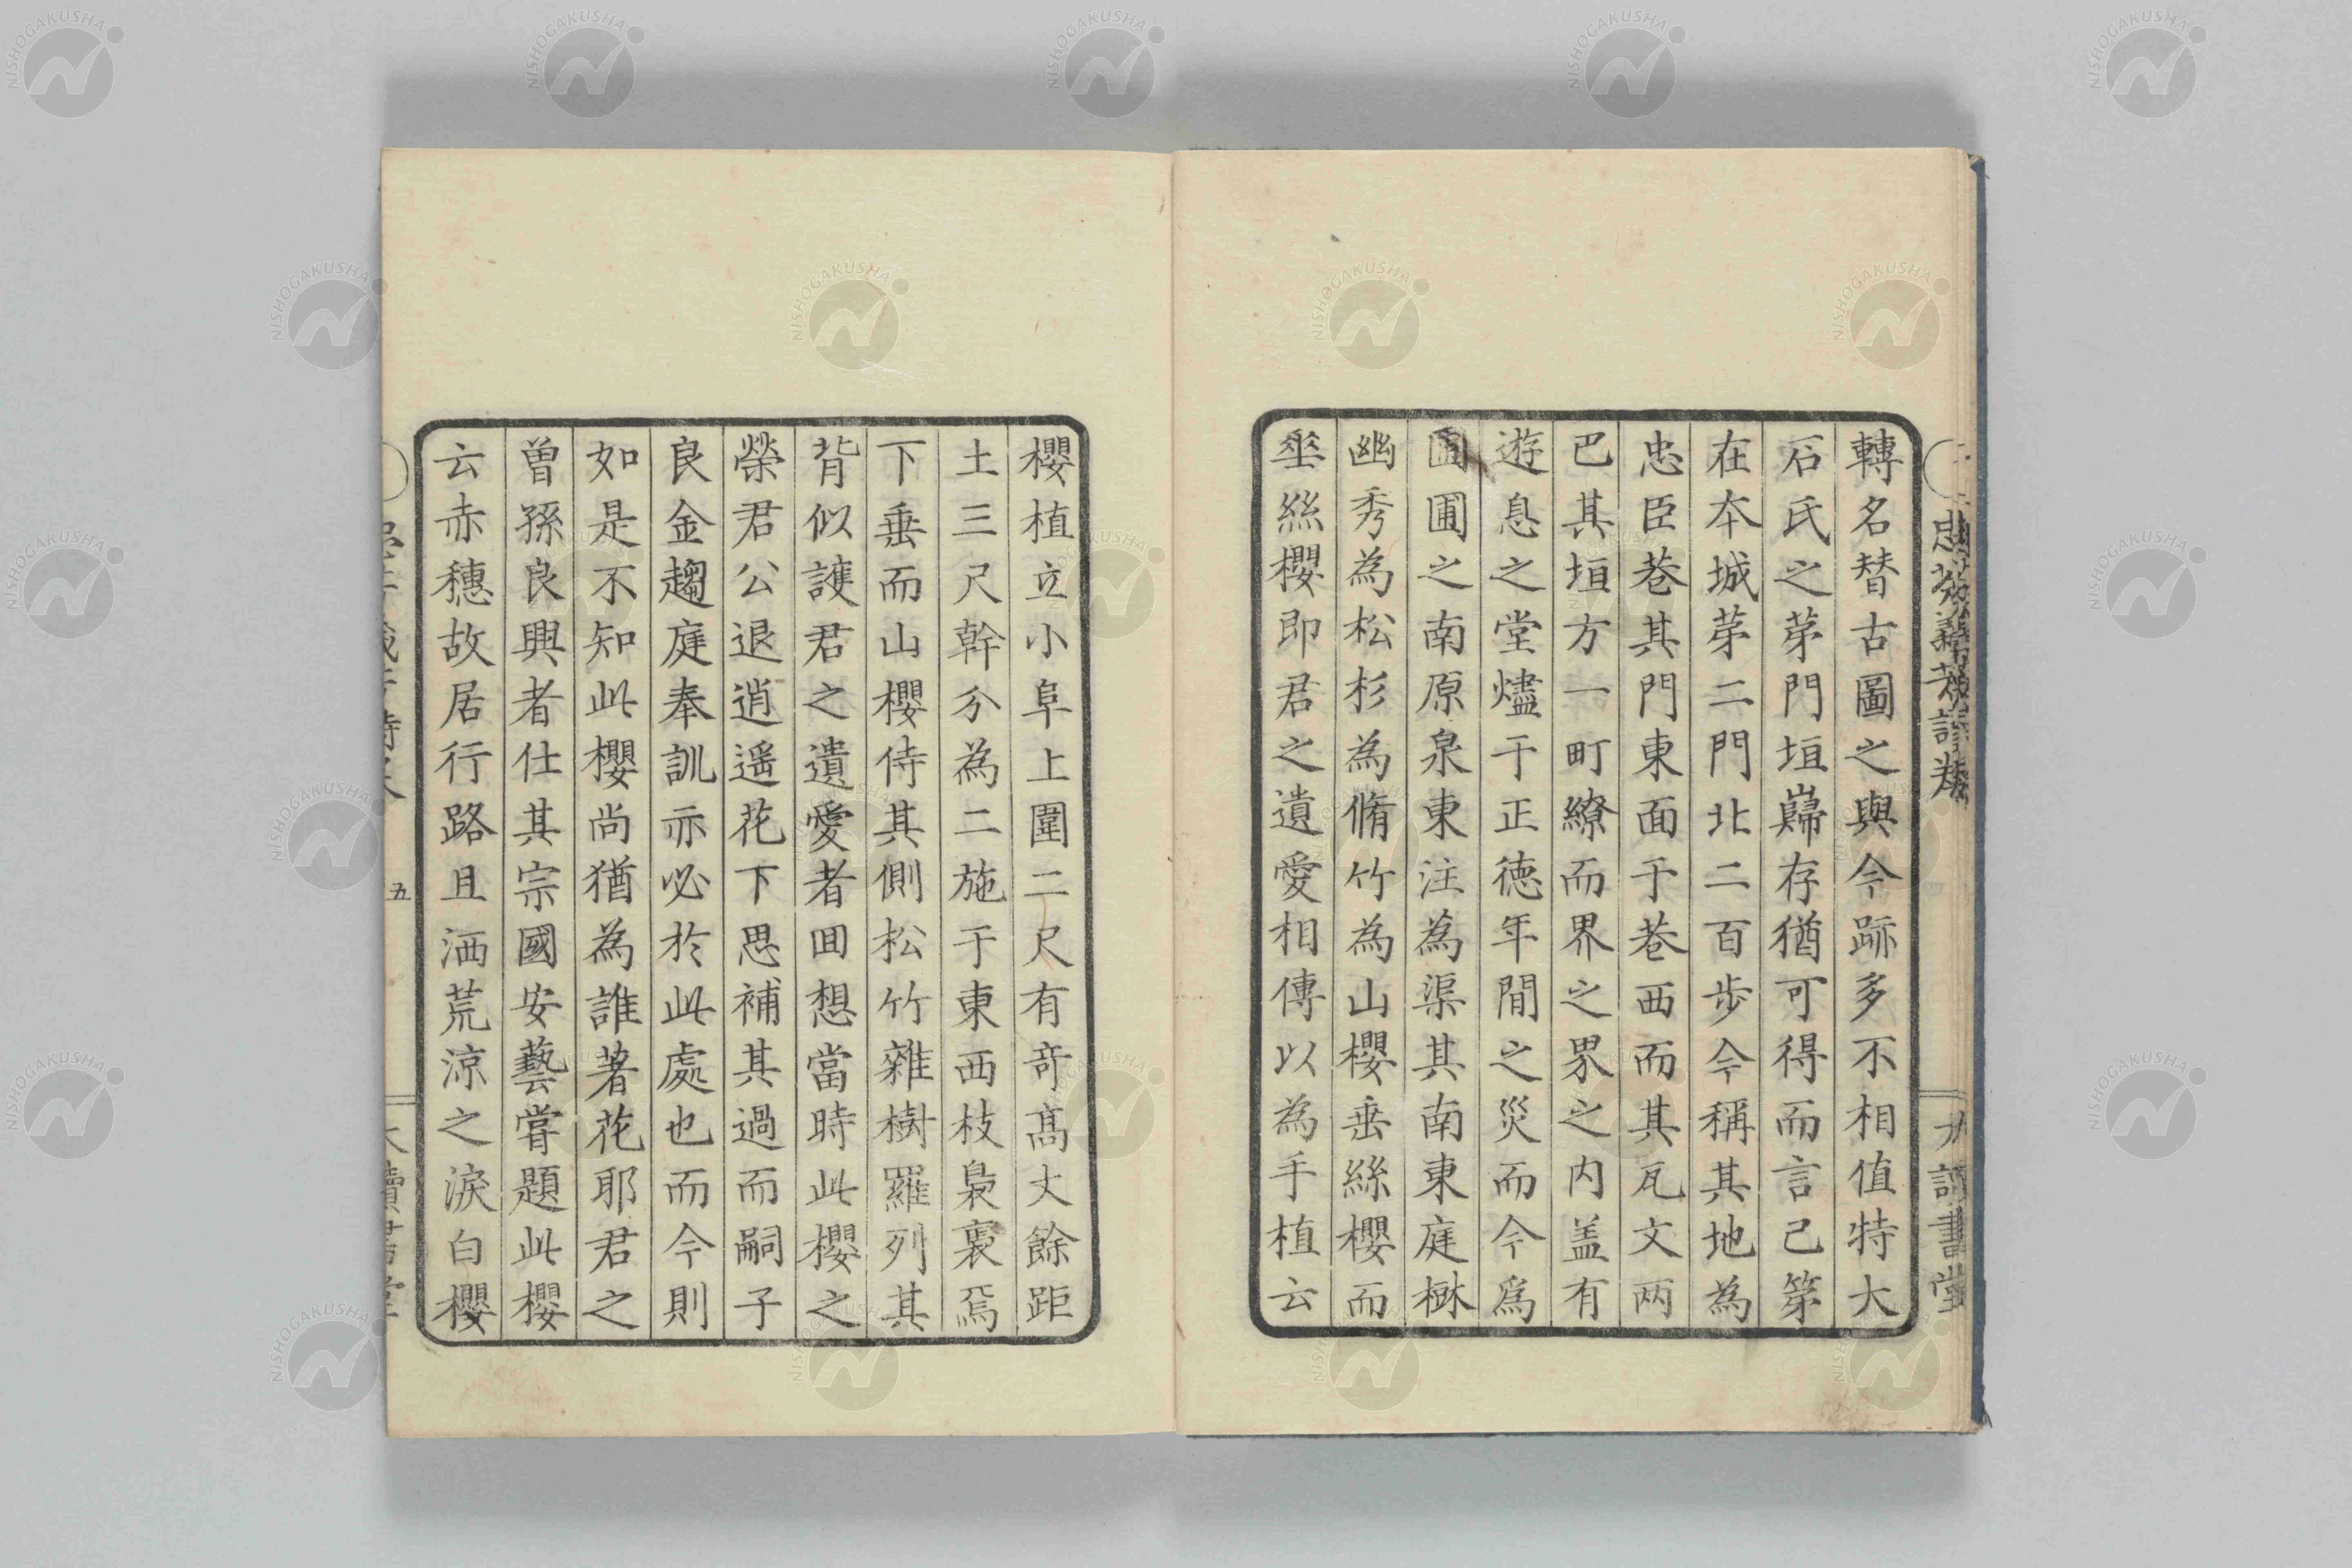 轉名替古圖之與今跡多不相值特大
石氏之苐門垣巋存猶可得而言己第
在本城苐二門北二百步今稱其地為
忠臣巷其門東面于巷西而其瓦文两
巴其垣方一町繚而界之界之内盖有
遊息之堂燼于正德年間之災而今爲
圃之南原泉東注為渠其南東庭楙
幽秀為松杉為脩竹為山櫻垂絲櫻而
垂絲櫻即君之遺愛相傳以為手植云
櫻植立小阜上圍二尺有竒髙丈餘距
土三尺幹分為二施于東西枝裊裏焉
下垂而山櫻侍其側松竹雜樹羅列其
背似護君之遺愛者囬想當時此櫻之
榮君公退逍遥花下思補其過而嗣子
良金趨庭奉訓亦必於此處也而今則
如是不知此櫻尚猶為誰著花耶君之
曽孫良興者仕其宗國安藝嘗題此櫻
云赤穗故居行路且洒荒凉之淚白櫻
五
NISHOGAKUSHA